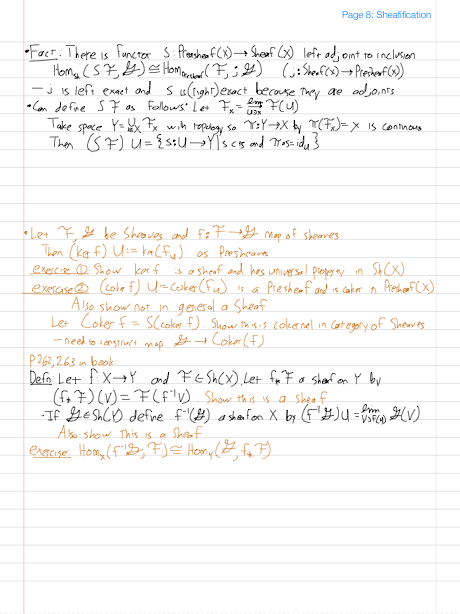 Page 8: Sheafification
• Fact: There is functor S: Presheaf(X) → Sheaf(X) left adjoint to inclusion
Hom_Sh(Sℱ, 𝒢) ≅ Hom_Presheaf(ℱ, j𝒢) (j: Sheaf(X) → Presheaf(X))
— j is left exact and S is (right) exact because they are adjoints
• Can define Sℱ as follows: Let ℱ_x = lim_{U∋x} ℱ(U)
Take space Y = ⊔_{x∈X} ℱ_x with topology so π: Y → X by π(ℱ_x) = x is continous
Then (Sℱ)U = {s: U → Y | s cts and π∘s = id_U}
• Let ℱ, 𝒢 be Sheaves and f: ℱ → 𝒢 map of sheaves
Then (ker f)U := ker(f_U) as Presheaves
exercise ① Show ker f is a sheaf and has universal property in Sh(X)
exercise ② (coker f) U = coker(f_U) is a Presheaf and is coker in Presheaf(X)
Also show not in general a Sheaf
Let Coker f = S(coker f). Show this is cokernel in category of Sheaves
– need to construct map 𝒢 → Coker(f)
P 262, 263 in book
Defn: Let f: X → Y and ℱ ∈ Sh(X). Let f_*ℱ a sheaf on Y by
(f_*ℱ)(V) = ℱ(f⁻¹V). Show this is a sheaf
- If 𝒢 ∈ Sh(Y) define f⁻¹(𝒢) a sheaf on X by (f⁻¹𝒢)U = lim_{V⊃f(U)} 𝒢(V)
Also show this is a Sheaf
exercise: Hom_X(f⁻¹𝒢, ℱ) ≅ Hom_Y(𝒢, f_*ℱ)